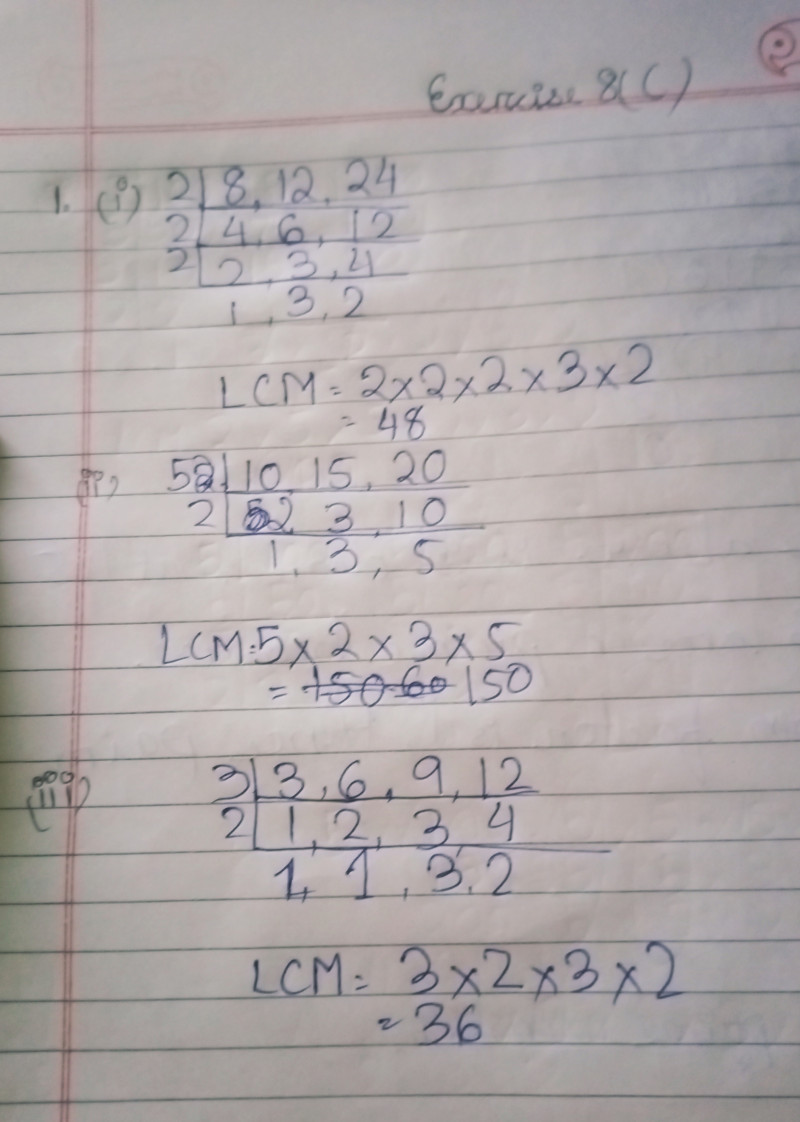 Exercise 8(C)
1. (i) 2 | 8, 12, 24
2 | 4, 6, 12
2 | 2, 3, 4
1, 3, 2
LCM = 2×2×2×3×2
= 48
(ii) 5 | 10, 15, 20
2 | 2 3, 10
1, 3, 5
LCM = 5×2×3×5
= 150 60 150
(iii) 3 | 3, 6, 9, 12
2 | 1, 2, 3, 4
1, 1, 3, 2
LCM = 3×2×3×2
= 36